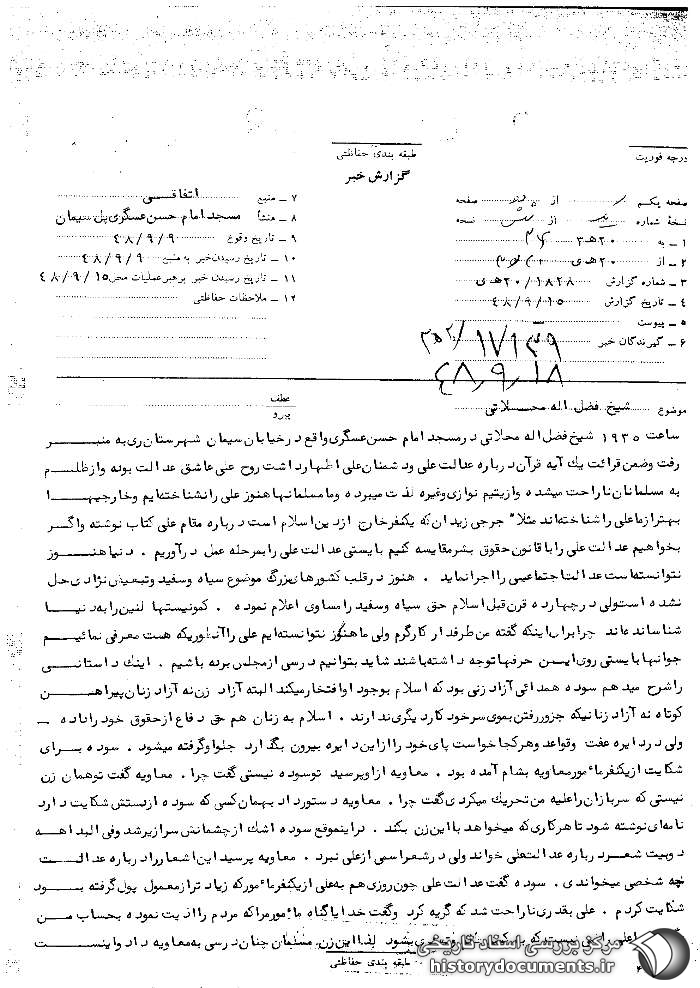 طبقه بندی حفاظتی
درجه فوریت
گزارش خبر
صفحه یکم از صفحه
نسخهٔ شماره از نسخه
۱ ـ به ۲۰هـ۳
۲ ـ از ۲۰هـی
۳ ـ شماره گزارش ۲۰/۱۸۲۸هـی
۴ ـ تاریخ گزارش ۴۸/۹/۱۵
۵ ـ پیوست
۶ ـ گیرندگان خبر
۷ ـ منبع اتفاقی
۸ ـ منشأ مسجد امام حسن عسگری پل سیمان
۹ ـ تاریخ وقوع ۴۸/۹/۹
۱۰ ـ تاریخ رسیدن خبر به منبع ۴۸/۹/۹
۱۱ ـ تاریخ رسیدن خبر برهبر عملیات محل ۴۸/۹/۱۵
۱۲ ـ ملاحظات حفاظتی
۳۵۲/۱۷۱۳۹
۴۸٫۹٫۱۸
موضوع شیخ فضل اله محلاتی
عطف
پیرو
ساعت ۱۹۳۵ شیخ فضل اله محلاتی در مسجد امام حسن عسگری واقع در خیابان سیمان شهرستان ری به منبر
رفت وضمن قرائت یك آیه قرآن درباره عدالت علی ود شمنان علی اظهارداشت روح علی عاشق عدالت بوده وازظلم
به مسلمانان ناراحت میشده وازیتیم نوازی وغیره لذت میبرده وما مسلمانها هنوز علی رانشناخته ایم وخارجیها
بهترازما علی راشناخته اند مثلا" جرجی زیدان که یکنفر خارج ازدین اسلام است درباره مقام علی کتاب نوشته واگر
بخواهیم عدالت علی رابا قانون حقوق بشر مقایسه کنیم بایستی عدالت علی رابمرحله عمل درآوریم . دنیا هنوز
نتوانسته است عدالت اجتماعیی رااجرا نماید . هنوز درقلب کشورهای بزرگ موضوع سیاه وسفید وتبعیض نژادی حل
نشده است ولی درچهارده قرن قبل اسلام حق سیاه وسفید رامساوی اعلام نموده . کمونیستها لنین رابه دنیا
شناسانده اند چرا برای اینکه گفته من طرفدار کارگرم ولی ما هنوز نتوانسته ایم علی راآنطوریکه هست معرفی نمائیم
جوانها بایستی روی ایسن حرفها توجه داشته باشند شاید بتوانیم درسی ازمجلس برده باشیم . اینك داستانی
راشرح میدهم سوده همدائی آزاد زنی بود که اسلام بوجود اوافتخارمیکند البته آزاد زن نه آزاد زنان پیراهن
کوتاه نه آزاد زنانیکه جزوررفتن بموی سرخود کار دیگری ندارند . اسلام به زنان هم حق دفاع ازحقوق خودراداده
ولی دردایره عفت وقواعد وهرکجا خواست پای خود راازاین دایره بیرون بگذارد جلواوگرفته میشود . سوده برای
شکایت ازیکنفر مأمور معاویه بشام آمده بود . معاویه ازاوپرسید توسوده نیستی گفت چرا . معاویه گفت توهمان زن
نیستی که سربازان راعلیه من تحریك میکردی گفت چرا . معاویه دستورداد بهمان کسی که سوده ازدستش شکایت دارد
نامه ای نوشته شود تا هرکاری که میخواهد با این زن بکند . دراینموقع سوده اشك ازچشمانش سرازیرشد وفی البداهه
دوبیت شعر درباره عدالت علی خواند ولی درشعر اسمی ازعلی نبرد . معاویه پرسید این اشعار را درباره عدالت
چه شخصی میخواندی . سوده گفت عدالت علی چون روزی هم به علی ازیکنفر مأمورکه زیاد ترازمعمول پول گرفته بود
شکایت کردم . علی بقدری ناراحت شد که گریه کرد وگفت خدایا گناه مأمور مرا که مردم رااذیت نموده بحساب من
لذا این زن مسلمان چنان درسی به معاویه داد واینست
طبقه بندی حفاظتی
مرکز بررسی اسناد تاریخی
historydocuments.ir